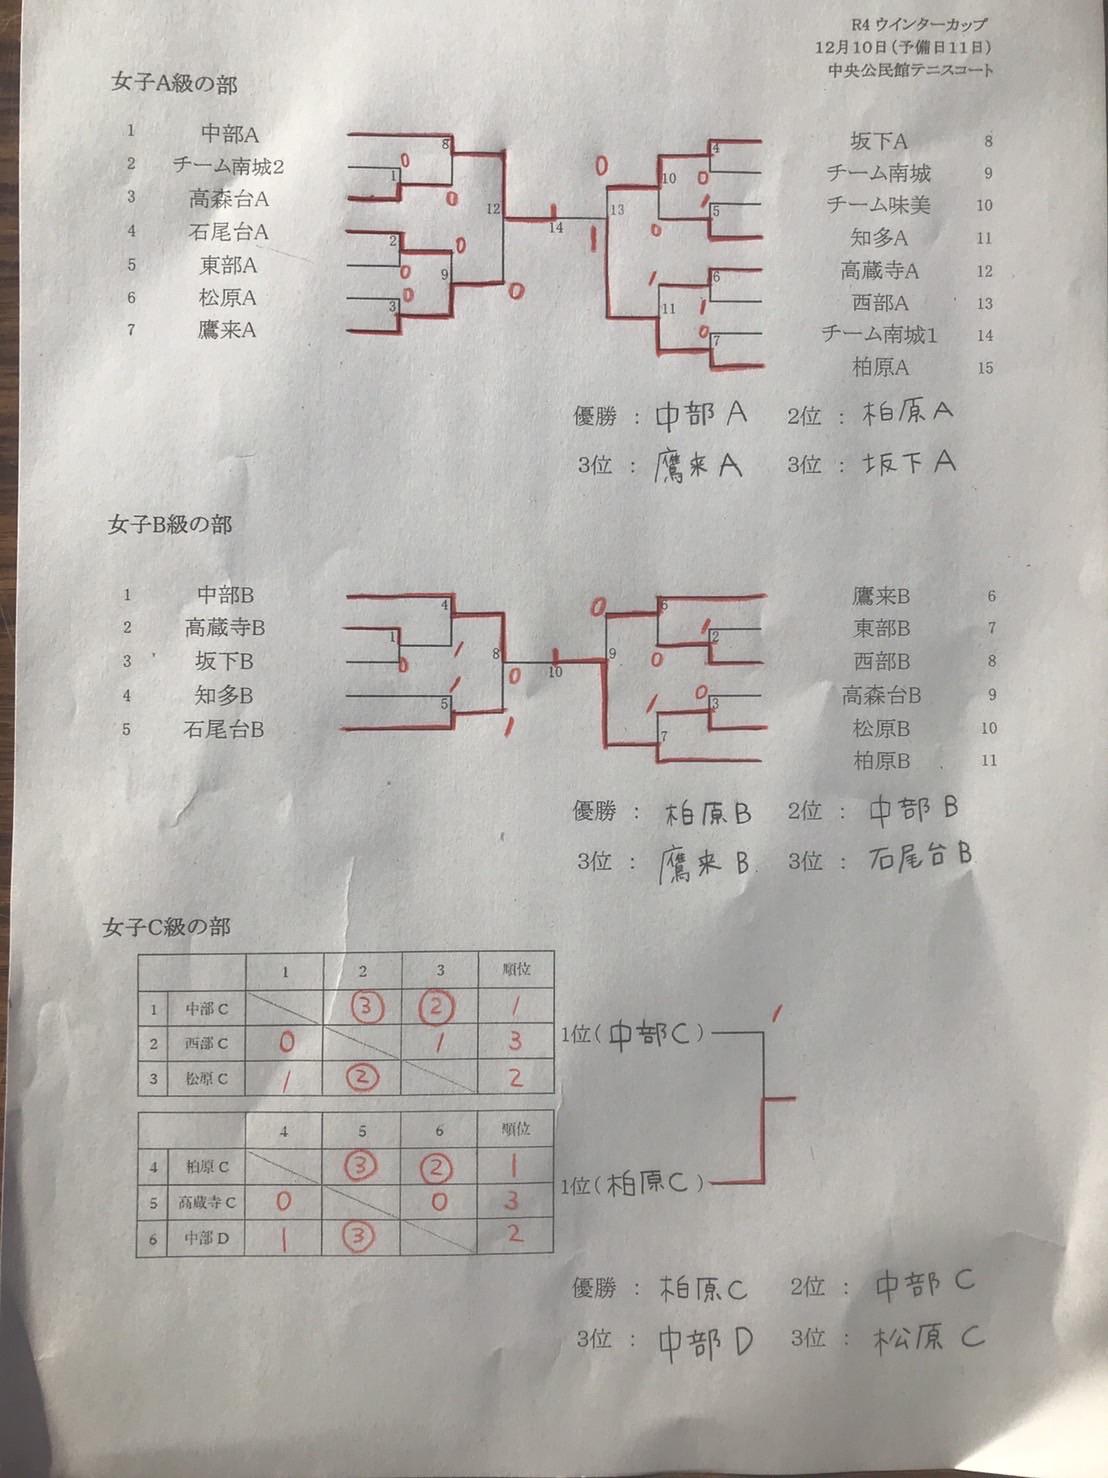 R4 ウインターカップ
12月10日(予備日11日)
中央公民館テニスコート
女子A級の部
1 中部A
2 チーム南城2
3 高森台A
4 石尾台A
5 東部A
6 松原A
7 鷹来A
坂下A 8
チーム南城 9
チーム味美 10
知多A 11
高蔵寺A 12
西部A 13
チーム南城1 14
柏原A 15
8 0 1 0 2 0 0 9 0 3 12 0 1 14
0 13 1 10 4 0 1 5 0 1 6 1 11 0 7
優勝 : 中部A 2位 : 柏原A
3位 : 鷹来A 3位 : 坂下A
女子B級の部
1 中部B
2 高蔵寺B
3 坂下B
4 知多B
5 石尾台B
鷹来B 6
東部B 7
西部B 8
高森台B 9
松原B 10
柏原B 11
4 1 0 1 1 5 8 0 1 10
0 9 6 1 2 0 1 0 3 7
優勝 : 柏原B 2位 : 中部B
3位 : 鷹来B 3位 : 石尾台B
女子C級の部
1 2 3 順位
1 中部C ③ ② 1
2 西部C 0 1 3
3 松原C 1 ② 2
4 5 6 順位
4 柏原C ③ ② 1
5 高蔵寺C 0 0 3
6 中部D 1 ③ 2
1位(中部C) 1
1位(柏原C)
優勝 : 柏原C 2位 : 中部C
3位 : 中部D 3位 : 松原C